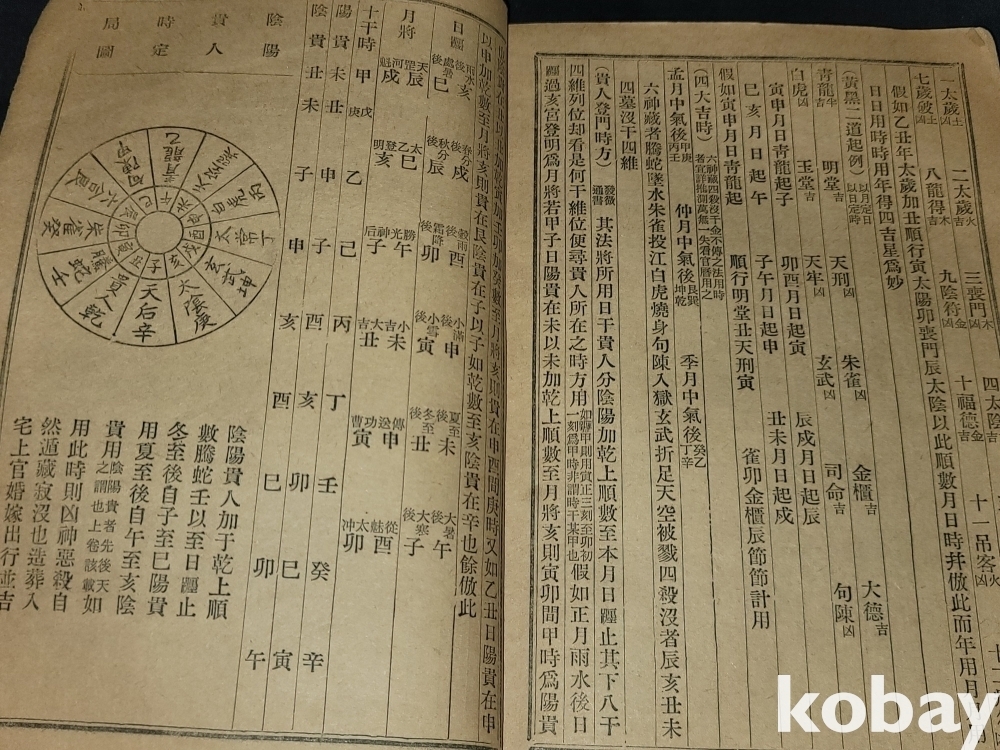 一太歲凶土 二太歲凶火 三喪門凶木 四太陰吉
七歲破凶土 八龍得吉木 九陰符凶金 十福德吉金 十一吊客凶火
假如乙丑年太歲加丑順行寅太陽卯喪門辰太陰以此順數月日時并倣此而年用月
日日用時時用年得四吉星爲妙
(黃黑二道起例)以月定日以日定時
青龍吉 明堂吉 天刑凶 朱雀凶 金櫃吉 大德吉
白虎凶 玉堂吉 天牢凶 玄武凶 司命吉 句陳凶
寅申月日青龍起子 卯酉月日起寅 辰戌月日起辰
巳亥月日起午 子午月日起申 丑未月日起戌
假如寅申月日靑龍起 順行明堂丑天刑寅 雀卯金櫃辰節節計用
(四大吉時)六神藏四殺沒千金不傳之法用時者宜詳推細萬無一失看官曆用之
孟月中氣後甲庚丙壬 仲月中氣後艮巽坤乾 季月中氣後癸乙丁辛
六神藏者騰蛇墜水朱雀投江白虎燒身句陳入獄玄武折足天空被戮四殺沒者辰亥丑未
四墓沒干四維
(貴人登門時方)發微通書 其法將所用日干貴人分陰陽加乾上順數至本月日躔止其下八干
四維列位却看是何干維位便尋貴人所在之時方用 假如正月雨水後日
躔過亥宮登明爲月將若甲子日陽貴在未以未加乾上順數至月將亥則寅卯間甲時爲陽貴
以甲加乾數至月將亥則貴在艮陰貴在子以子如乾數至亥陰貴在辛也餘倣此
日躔 雨水後亥 處暑後巳 春分後戌 秋分後辰 穀雨後酉 霜降後卯 小滿後申 小雪後寅 夏至後未 冬至後丑 大暑後午 大寒後子
月將 天罡辰 河魁戌 太乙巳 登明亥 勝光午 神后子 小吉未 大吉丑 傳送申 功曹寅 從魁酉 太冲卯
十干時 甲戊庚 乙 己 丙 丁 壬 癸 辛
陽貴 未丑 申 子 酉 亥 卯 巳 寅
陰貴 丑未 子 申 亥 酉 巳 卯 午
陰陽
貴人
時定
局圖
陰陽貴人加于乾上順
數騰蛇壬以至日躔止
冬至後自子至巳陽貴
用夏至後自午至亥陰
貴用陰陽貴者先後天之謂也上卷該載如
用此時則凶神惡殺自
然遁藏寂沒也造葬入
宅上官婚嫁出行並吉
貴人乾
天右辛
太陰庚
玄武坤
太常丁
青龍乙
句陳甲
六合艮
朱雀癸
騰蛇壬
kobay